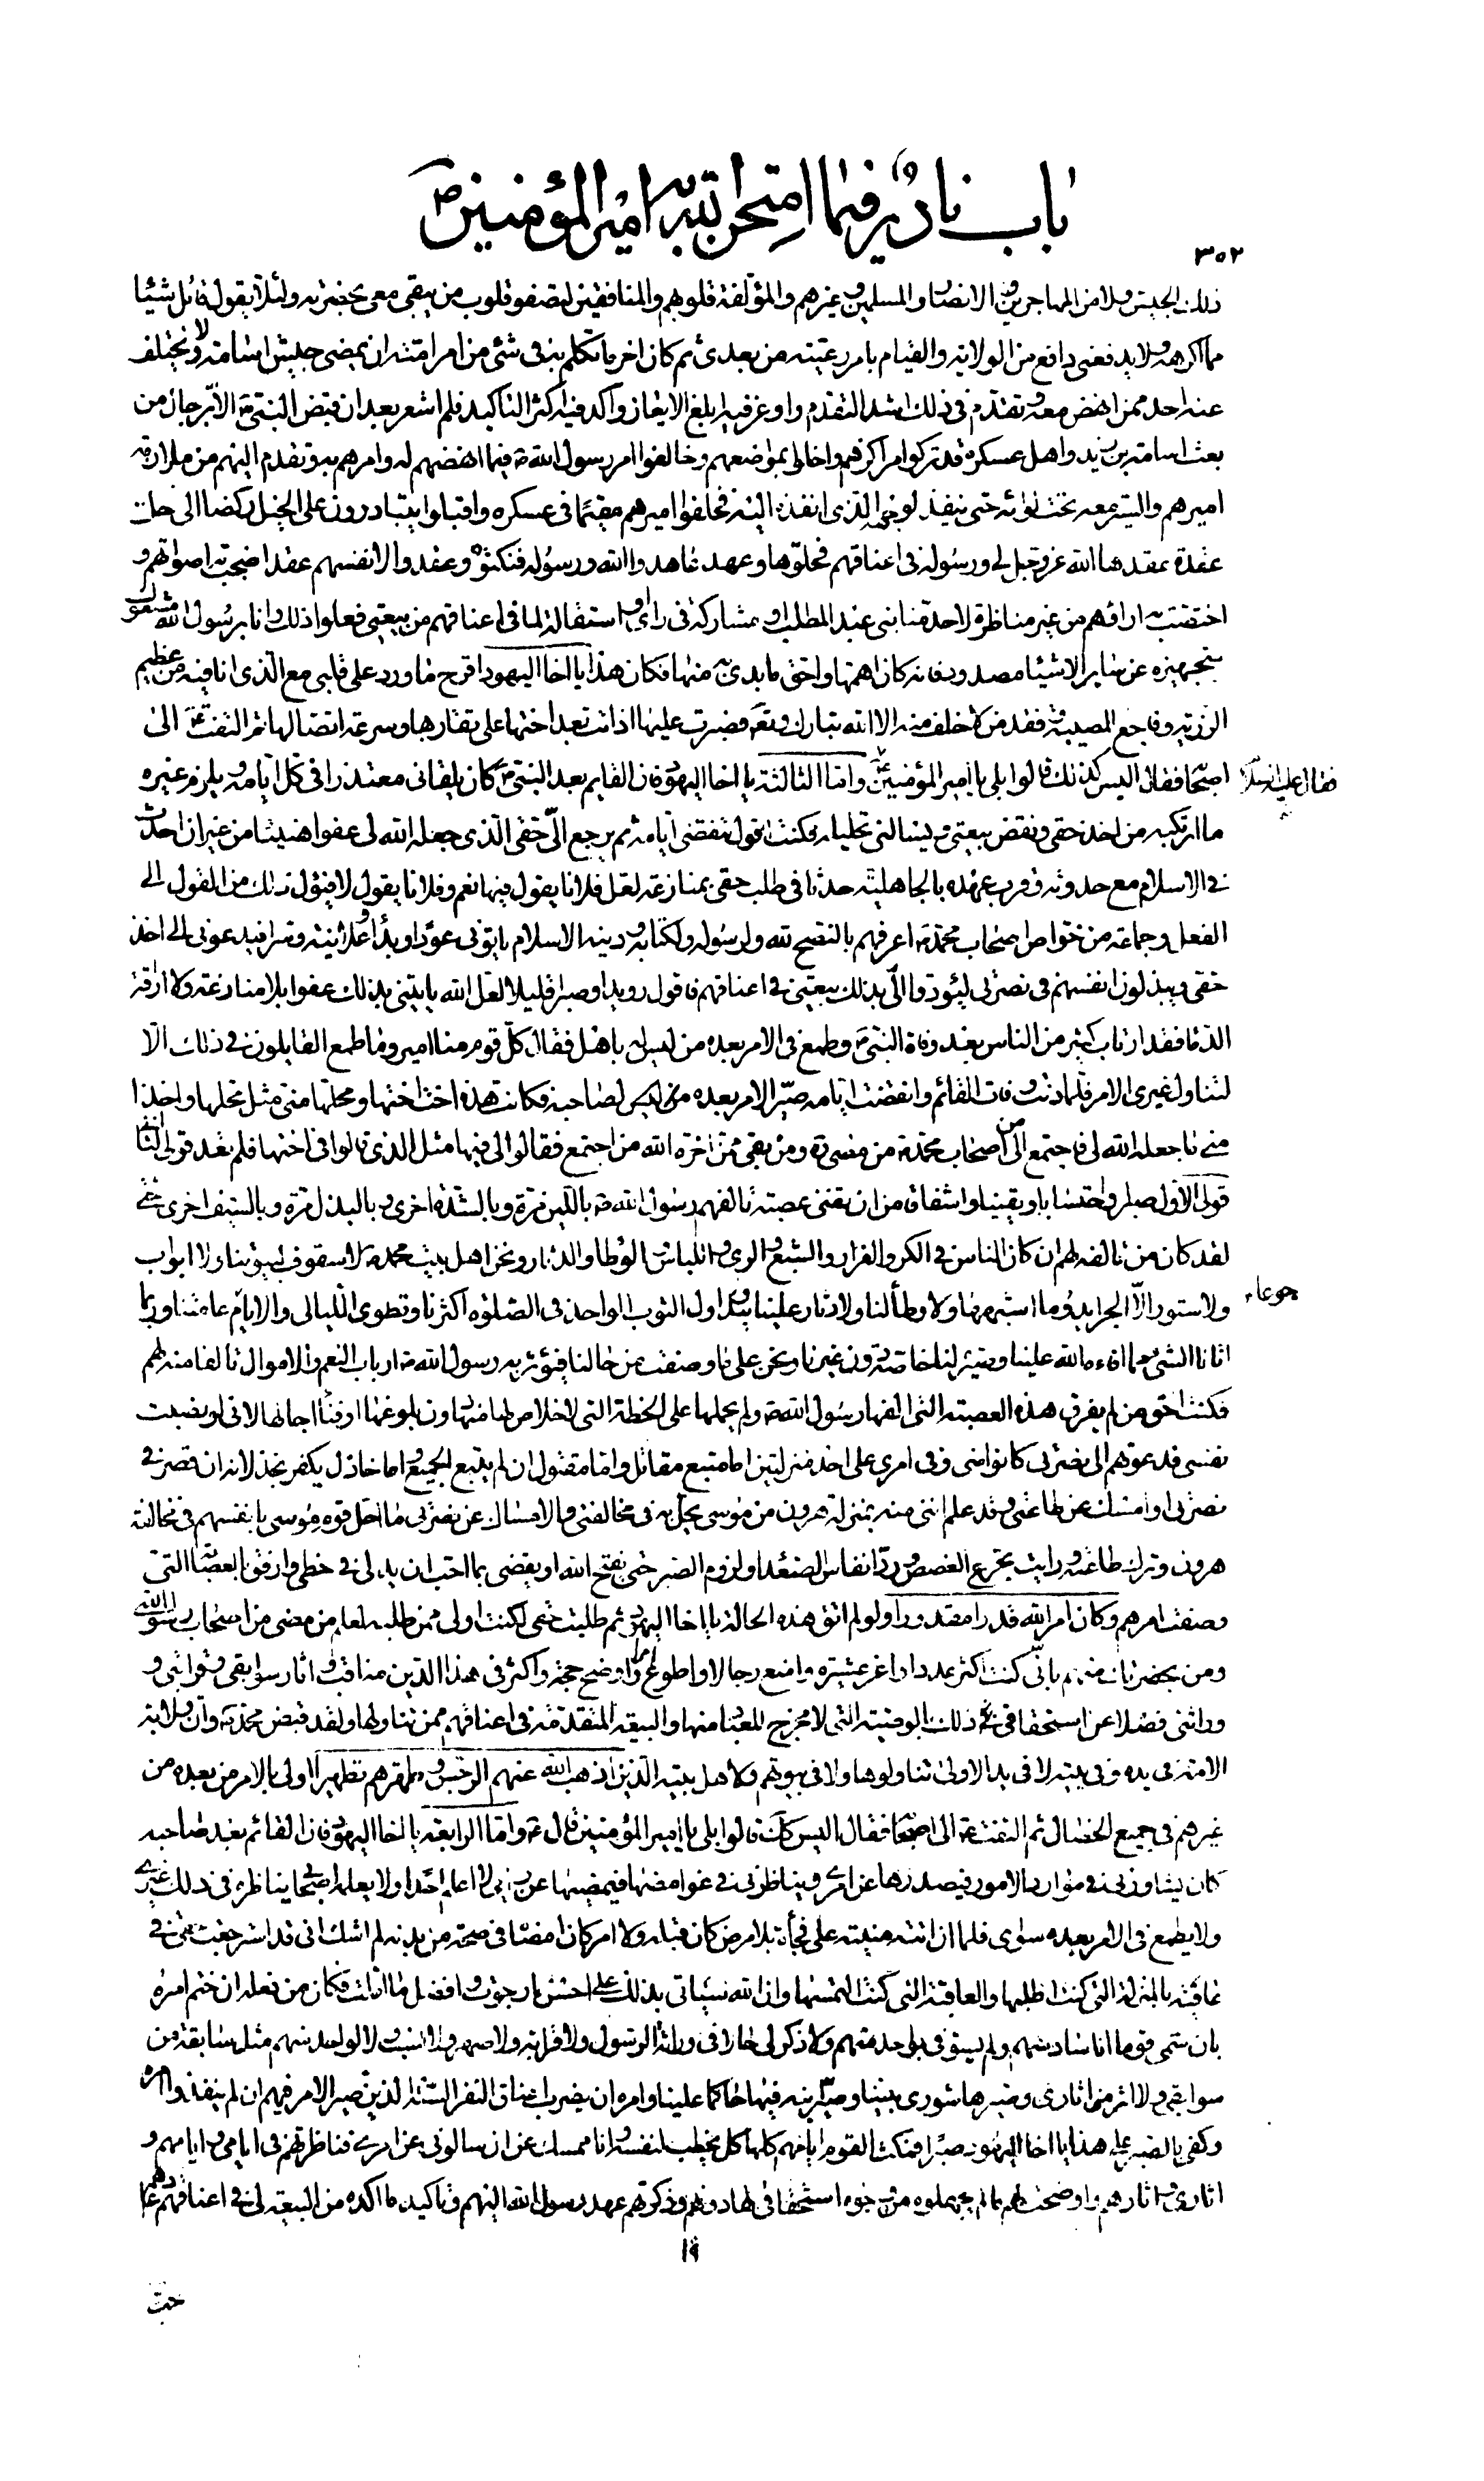 باب نادر فيما امتحن الله به امير المؤمنين ص
٣٥٢
ذلك الجيش ولا من المهاجرين والانصار والمسلمين وغيرهم والمؤلفة قلوبهم والمنافقين لتصفو قلوب من يبقى معى بحضرته ولئلا يقول قائل شيئا
مما اكرهه ولا يدفعنى دافع من الولاية والقيام بامر رعيته من بعده ثم كان اخر ما تكلم به فى شئ من امر امته ان يمضى جيش اسامة ولا يختلف
عنه احد ممن انهض معه وتقدم فى ذلك اشد التقدم واوعز فيه ابلغ الايعاز واكد فيه اكثر التاكيد فلم اشعر بعد ان قبض النبى ص الا برجال من
بعث اسامة بن زيد واهل عسكره قد تركوا مراكزهم واخلوا بمواضعهم وخالفوا امر رسول الله ص فيما انهضهم له وامرهم به وتقدم اليهم من ملازمة
اميرهم والسير معه تحت لوائه حتى ينفذ لوجهه الذى انفذه اليه فخلفوا اميرهم مقيما فى عسكره واقبلوا يتبادرون على الخيل ركضا الى حل
عقدة عقدها الله عز وجل لى ورسوله فى اعناقهم فحلوها وعهد عاهدوا الله ورسوله فنكثوه وعقدوا لانفسهم عقدا ضجت به اصواتهم و
اختصت به اراؤهم من غير مناظرة لاحد منا بنى عبد المطلب او مشاركة فى راى او استقالة لما فى اعناقهم من بيعتى فعلوا ذلك وانا برسول الله مشغول
بتجهيزه عن سائر الاشياء مصدود فانه كان اهمها واحق ما بدئ به منها فكان هذا يا اخا اليهود اقرح ما ورد على قلبى مع الذى انا فيه من عظيم
الرزية وفاجع المصيبة وفقد من لا خلف منه الا الله تبارك وتعالى فصبرت عليها اذ اتت بعد اختها على تقاربها وسرعة اتصالها ثم التفت ع الى
اصحابه فقال اليس كذلك قالوا بلى يا امير المؤمنين فقال عليه السلام واما الثالثة يا اخا اليهود فان القايم بعد النبى ص كان يلقانى معتذرا فى كل ايامه ويلزم غيره
ما ارتكبه من اخذ حقى ونقض بيعتى ويسالنى تحليله فكنت اقول تنقضى ايامه ثم يرجع الى حقى الذى جعله الله لى عفوا هنيئا من غير ان احدث
فى الاسلام مع حدوثه وقرب عهده بالجاهلية حدثا فى طلب حقى بمنازعة لعل فلانا يقول فيها نعم وفلانا يقول لا فيؤل ذلك من القول الى
الفعل وجماعة من خواص اصحاب محمد ص اعرفهم بالنصح لله ولرسوله ولكتابه ودينه الاسلام ياتونى عودا وبدءا وعلانية وسرا فيدعونى الى اخذ
حقى ويبذلون انفسهم فى نصرتى ليؤدوا الى بذلك بيعتى فى اعناقهم فاقول رويدا وصبرا قليلا لعل الله ياتينى بذلك عفوا بلا منازعة ولا اراقة
الدماء فقد ارتاب كثير من الناس بعد وفاة النبى ص وطمع فى الامر بعده من ليس له باهل فقال كل قوم منا امير وما طمع القايلون فى ذلك الا
لتناول غيرى الامر فلما دنت وفاة القائم وانقضت ايامه صير الامر بعده من لصاحبه فكانت هذه اخت اختها ومحلها منى مثل محلها واخذا
منى ما جعله الله لى فاجتمع الى من اصحاب محمد ص من مضى ومن بقى ممن اخره الله من اجتمع فقالوا لى فيها مثل الذى قالوا فى اختها فلم يعد قولى الثانى
قولى الاول صبرا واحتسابا ويقينا واشفاقا من ان تفنى عصبة تالفهم رسول الله ص باللين مرة وبالشدة اخرى وبالبذل مرة وبالسيف اخرى حتى
لقد كان من تالفه لهم ان كان الناس فى الكر والفرار والشبع والرى واللباس والوطاء والدثار ونحن اهل بيت محمد ص لا سقوف لبيوتنا ولا ابواب
ولا ستور الا الجرايد وما اشبهها ولا وطأ لنا ولا دثار علينا يتداول الثوب الواحد فى الصلوة اكثرنا وتطوى الليالى والايام جوعا عامتنا وربما
اتانا الشئ مما افاءه الله علينا وصيره لنا خاصة دون غيرنا ونحن على ما وصفت من حالنا فيؤثر به رسول الله ص ارباب النعم والاموال تالفا منه لهم
فكنت احق من لم يفرق هذه العصبة التى الفها رسول الله ص ولم يحملها على الخطة التى لا خلاص لها منها دون بلوغها او فناء اجالها لانى لو نصبت
نفسى فدعوتهم الى نصرتى كانوا منى وفى امرى على احد منزلتين اما متبع مقاتل واما مقتول ان لم يتبع الجميع واما خاذل يكفر بخذلانه ان قصر فى
نصرتى او امسك عن طاعتى وقد علم اننى منه بمنزلة هرون من موسى يحل به فى مخالفتى والامساك عن نصرتى ما احل قوم موسى بانفسهم فى مخالفة
هرون وترك طاعته ورايت تجرع الغصص ورد انفاس الصعداء ولزوم الصبر حتى يفتح الله او يقضى بما احب ازيد لى فى حظى وارفق بالعصابة التى
وصفت امرهم وكان امر الله قدرا مقدورا ولو لم اتق هذه الحالة يا اخا اليهود ثم طلبت حقى لكنت اولى ممن طلبه لعلم من مضى من اصحاب رسول الله
ومن بحضرتك منهم بانى كنت اكثر عددا واعز عشيرة وامنع رجالا واطوع امرا واوضح حجة واكثر فى هذا الدين مناقب واثارا لسوابقى وقرابتى و
وراثتى فضلا عن استحقاقى ذلك بالوصية التى لا مخرج للعباد منها والبيعة المتقدمة فى اعناقهم ممن تناولها ولقد قبض محمد ص وان ولاية
الامة فى يده وفى بيته لا فى يد الاولى تناولوها ولا فى بيوتهم ولاهل بيته الذين اذهب الله عنهم الرجس وطهرهم تطهيرا اولى بالامر من بعده من
غيرهم فى جميع الخصال ثم التفت ع الى اصحابه فقال اليس كك قالوا بلى يا امير المؤمنين قال ع واما الرابعة يا اخا اليهود فان القائم بعد صاحبه
كان يشاورنى فى موارد الامور فيصدرها عن امرى ويناظرنى فى غوامضها فيمضيها عن رايى لا اعلم احدا ولا يعلمه اصحابى يناظره فى ذلك غيرى
ولا يطمع فى الامر بعده سواى فلما ان اتته منيته على فجأة بلا مرض كان قبله ولا امر كان امضاه فى صحة من بدنه لم اشك انى قد استرجعت حقى فى
عافية بالمنزلة التى كنت اطلبها والعاقبة التى كنت التمسها وان الله سياتى بذلك على احسن ما رجوت وافضل ما املت فكان من فعله ان ختم امره
بان سمى قوما انا سادسهم ولم يستو فى بواحد منهم ولا ذكر لى حالا فى وراثة الرسول ولا قرابة ولا صهر ولا نسب ولا لواحد منهم مثل سابقة من
سوابقى ولا اثر من اثارى وصيرها شورى بيننا وصير ابنه فيها حاكما علينا وامره ان يضرب اعناق النفر الستة الذين صير الامر فيهم ان لم ينفذوا امره
وكفى بالصبر على هذا يا اخا اليهود صبرا فمكث القوم ايامهم كلها كل يخطب لنفسه وانا ممسك عن ان سالونى عن امرى فناظرتهم فى ايامى وايامهم و
اثارى واثارهم واوضحت لهم ما لم يجهلوه من وجوه استحقاقى لها دونهم وذكرتهم عهد رسول الله اليهم وتاكيد ما اكده من البيعة لى فى اعناقهم دعاهم
١٩
حب